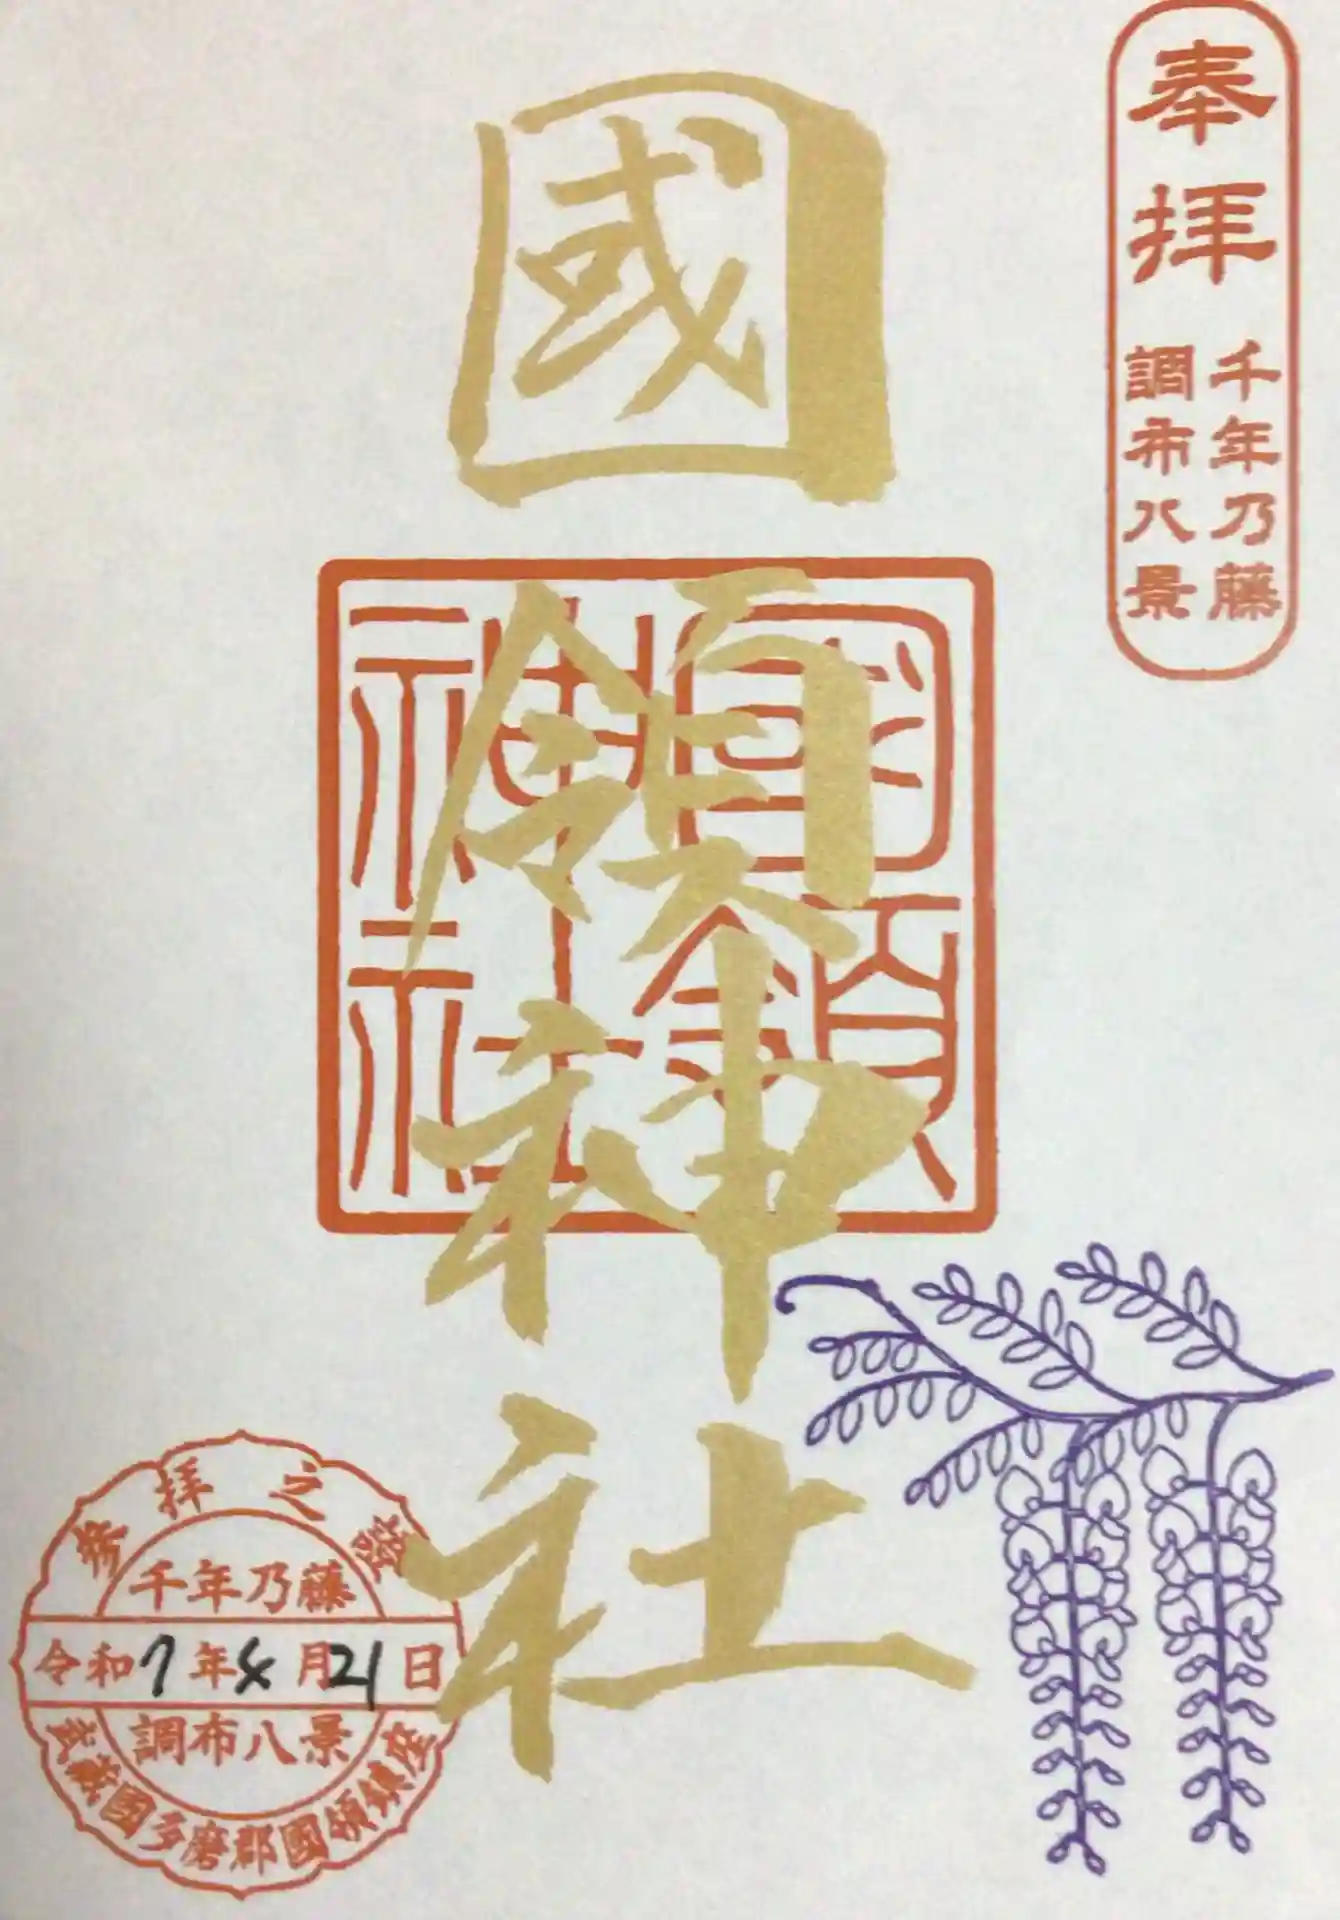 奉拝
千年乃藤
調布八景
國領神社
國領
神社
参拝之證
千年乃藤
令和7年4月21日
調布八景
武蔵國多磨郡國領鎮座